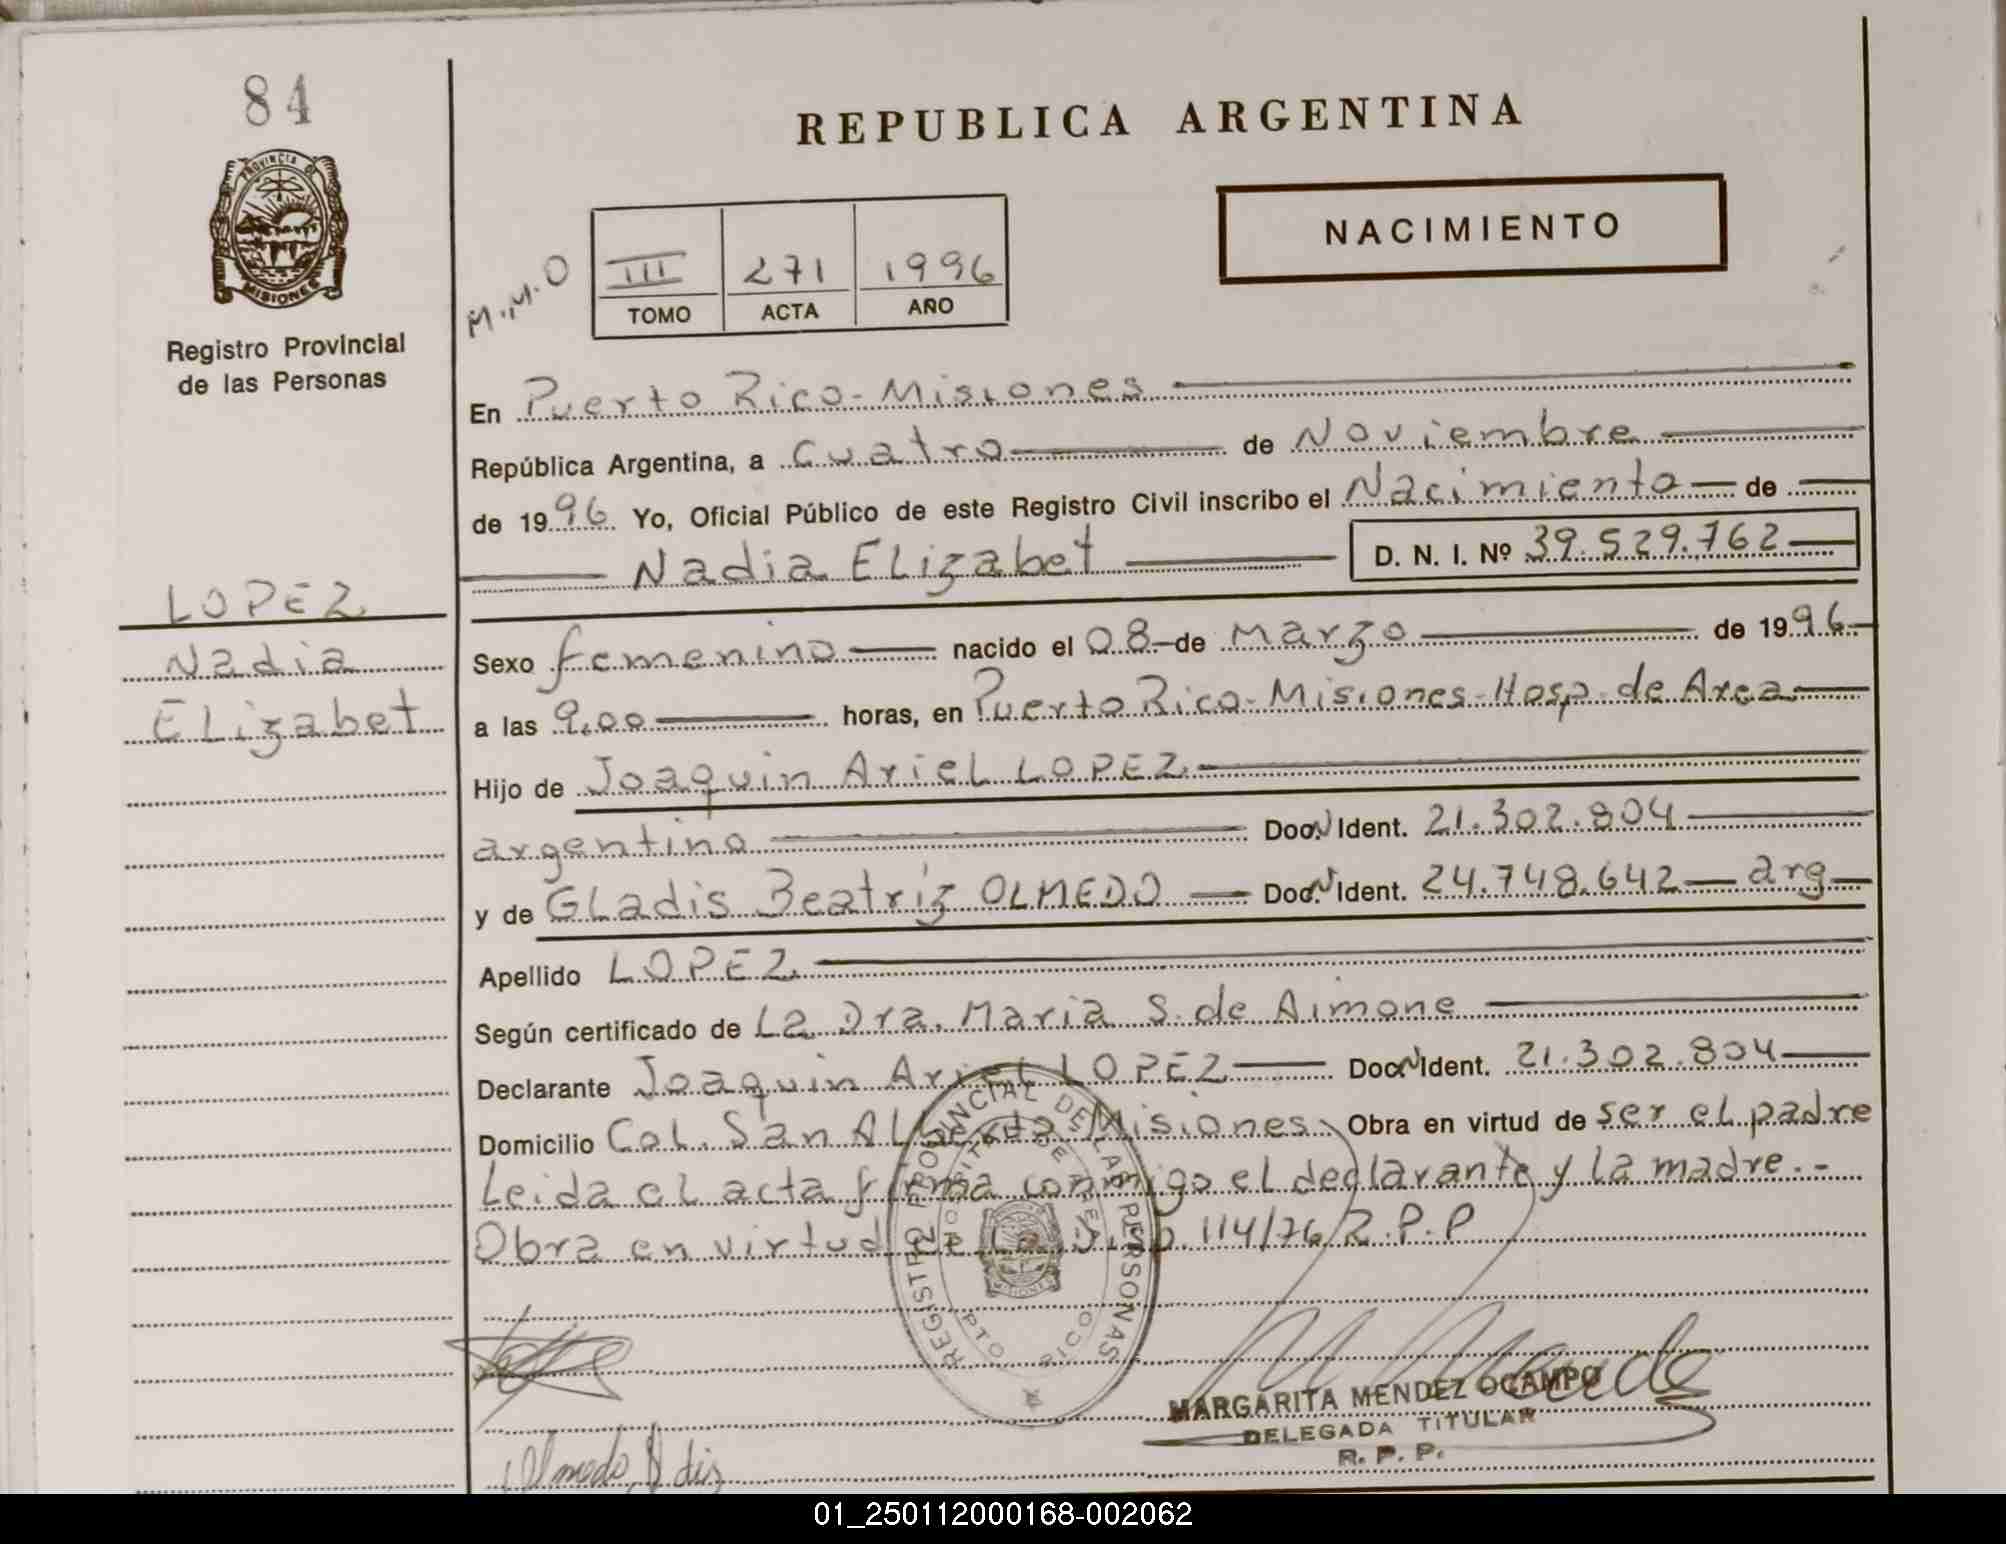 84
PROVINCIA DE
MISIONES
Registro Provincial
de las Personas
LOPEZ
Nadia
Elizabet
REPUBLICA ARGENTINA
M.M.O
III 271 1996
TOMO ACTA AÑO
NACIMIENTO
En Puerto Rico-Misiones
República Argentina, a cuatro de Noviembre
de 1996 Yo, Oficial Público de este Registro Civil inscribo el Nacimiento de
Nadia Elizabet D. N. I. Nº 39.529.762
Sexo femenino nacido el 08 de Marzo de 1996
a las 9,00 horas, en Puerto Rico-Misiones-Hosp. de Area
Hijo de Joaquin Ariel LOPEZ
argentino Doc.N Ident. 21.302.804
y de Gladis Beatriz OLMEDO Doc.N Ident. 24.748.642 arg
Apellido LOPEZ
Según certificado de La Dra. Maria S. de Aimone
Declarante Joaquin Ariel LOPEZ Doc.N Ident. 21.302.804
Domicilio Col. San Alberto Misiones Obra en virtud de ser el padre
Leida el acta firma conmigo el declarante y la madre.-
Obra en virtud de la Disp. 114/76 R.P.P
REGISTRO PROVINCIAL DE LAS PERSONAS
HOSPITAL DE AREA
PTO RICO
MISIONES
MARGARITA MENDEZ OCAMPO
DELEGADA TITULAR
R. P. P.
Olmedo
01_250112000168-002062